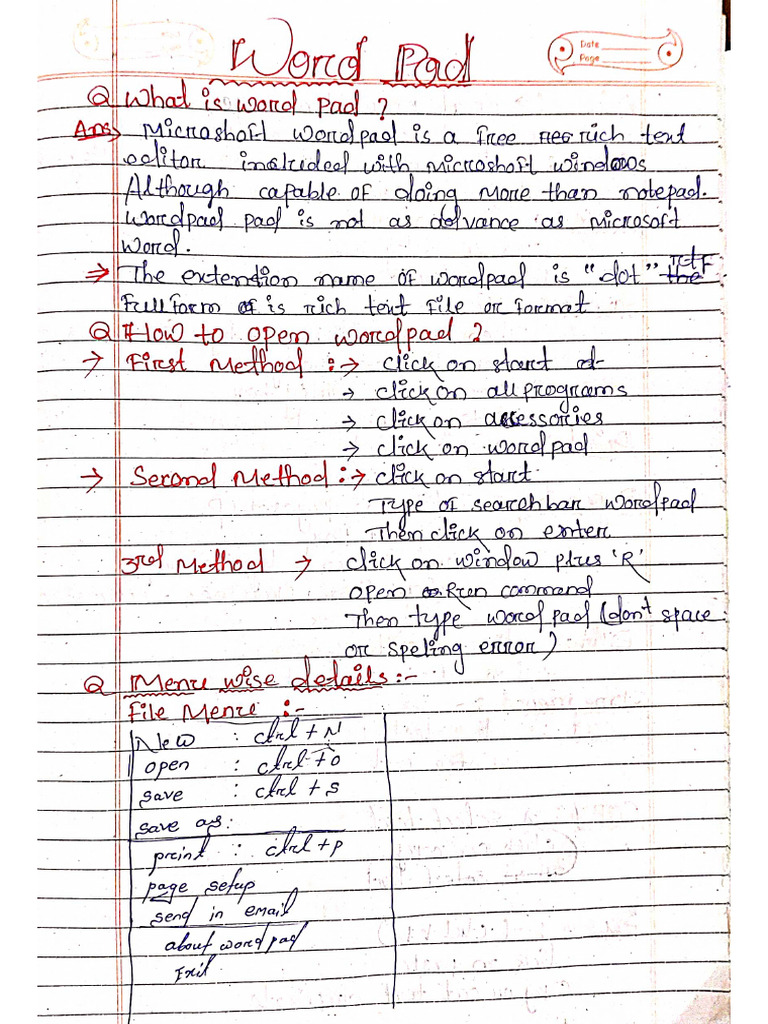 Word Pad
Date
Page
Q What is word pad ?
Ans> Microshoft wordpad is a free rich text
editor included with microshoft windows
Although capable of doing more than notepad.
wordpad pad is not as advance as microsoft
word.
⇒ The extention name of wordpad is "dot"
Full form of is rich text file or format
Q How to open wordpad ?
→ First Method :→ click on start
→ click on all programs
→ click on accessories
→ click on wordpad
→ Second Method :→ click on start
Type of search bar wordpad
Then click on enter
3rd Method → click on window plus 'R'
open Run command
Then type wordpad (don't space
or speling error)
Q Menu wise details :-
File Menu :-
New : ctrl + N
open : ctrl + o
save : ctrl + s
save as :
print : ctrl + p
page setup
send in email
about wordpad
Exit